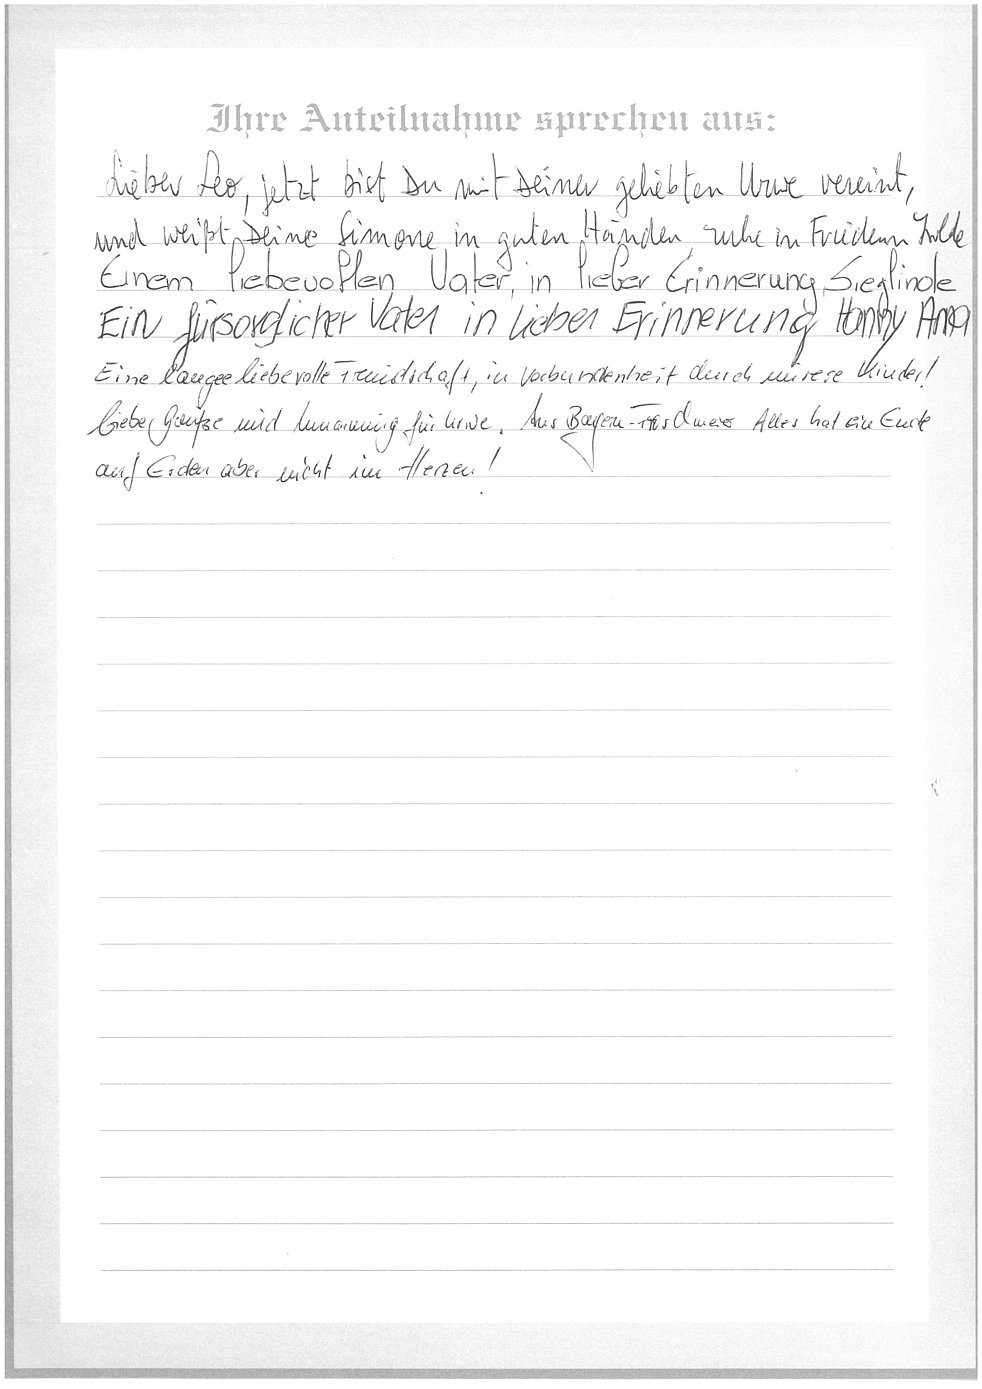 Ihre Anteilnahme sprechen aus:
Lieber Leo, jetzt bist Du mit Deiner geliebten Urve vereint,
und weißt Deine Simone in guten Händen, ruhe in Frieden
Einem liebevollen Vater, in lieber Erinnerung Sieglinde
Ein fürsorglicher Vater in lieber Erinnerung Hanny Anna
Eine lange liebevolle Freundschaft, in Verbundenheit durch unsere Kinder!
Lieber Grüße und für Urve. Aus Bayern Alles hat ein Ende
auf Erden aber nicht im Herzen!